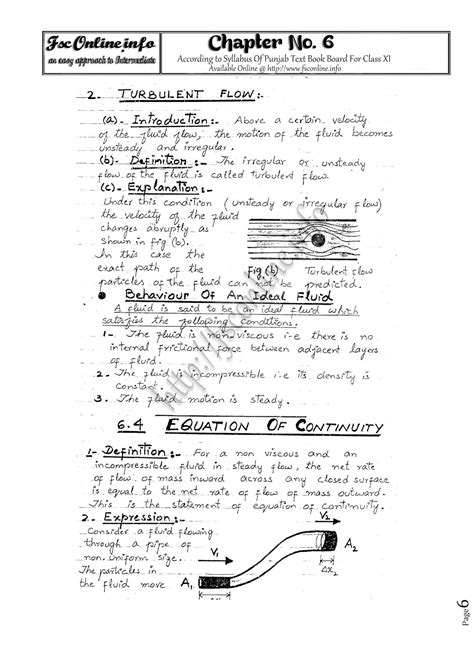 FscOnline.info
an easy approach to Intermediate
Chapter No. 6
According to Syllabus Of Punjab Text Book Board For Class XI
Available Online @ http://www.fsconline.info
2. TURBULENT FLOW:-
(a)- Introduction:- Above a certain velocity
of the fluid flow, the motion of the fluid becomes
unsteady and irregular.
(b)- Definition:- The irregular or unsteady
flow of the fluid is called turbulent flow.
(c)- Explanation:-
Under this condition (unsteady or irregular flow)
the velocity of the fluid
changes abruptly as
shown in fig (b).
In this case the
exact path of the Fig (b) Turbulent flow
particles of the fluid can not be predicted.
Behaviour Of An Ideal Fluid
A fluid is said to be an ideal fluid which
satisfies the following conditions.
1- The fluid is non viscous i-e there is no
internal frictional force between adjacent layers
of fluid.
2. The fluid is incompressible i-e its density is
constant.
3. The fluid motion is steady.
6.4 EQUATION OF CONTINUITY
1- Definition:- For a non viscous and an
incompressible fluid in steady flow, the net rate
of flow of mass inward across any closed surface
is equal to the net rate of flow of mass outward.
This is the statement of equation of continuity.
2- Expression:-
Consider a fluid flowing
through a pipe of
non uniform size.
The particles in
the fluid move
V₂
A₂
V₁
Δx₂
A₁
http://fsconline.info
Page 6